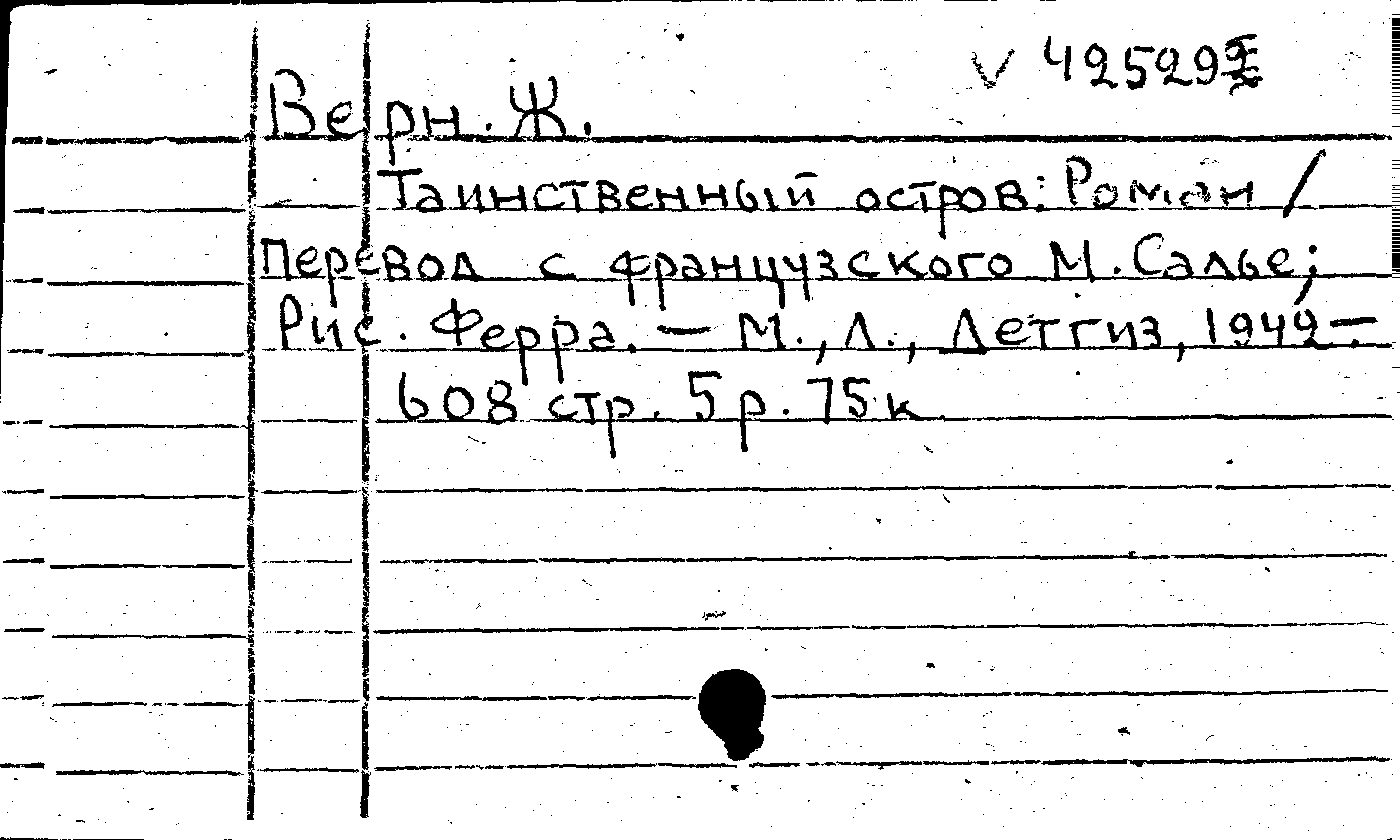 V 425292
Верн. Ж.
Таинственный остров: Роман /
Перевод с французского М. Салье;
Рис. Ферра. — М., Л., Детгиз, 1949. —
608 стр. 5 р. 75 к